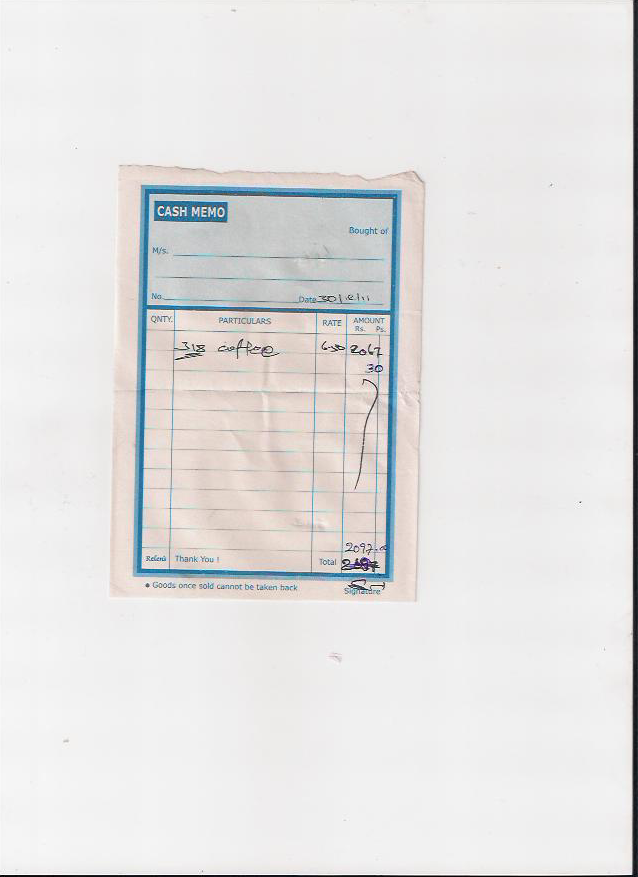 CASH MEMO
Bought of
M/s.
No. Date 30/12/11
QNTY. PARTICULARS RATE AMOUNT
Rs. Ps.
318 coffee 6.50 2067
30
2097.00
Relen's Thank You ! Total
• Goods once sold cannot be taken back
Signature